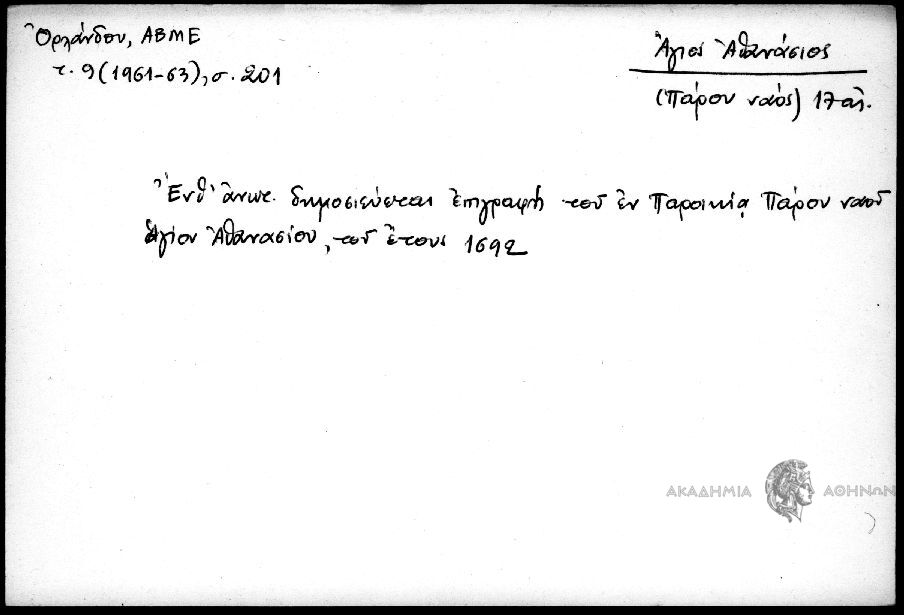 Ὀρλάνδου, ΑΒΜΕ
τ. 9 (1961-63), σ. 201
Ἅγιος Ἀθανάσιος
(Πάρου ναός) 17 αἰ.
Ἐνθ' ἀνωτ. δημοσιεύεται ἐπιγραφὴ τοῦ ἐν Παροικίᾳ Πάρου ναοῦ
Ἁγίου Ἀθανασίου, τοῦ ἔτους 1692
ΑΚΑΔΗΜΙΑ ΑΘΗΝΩΝ